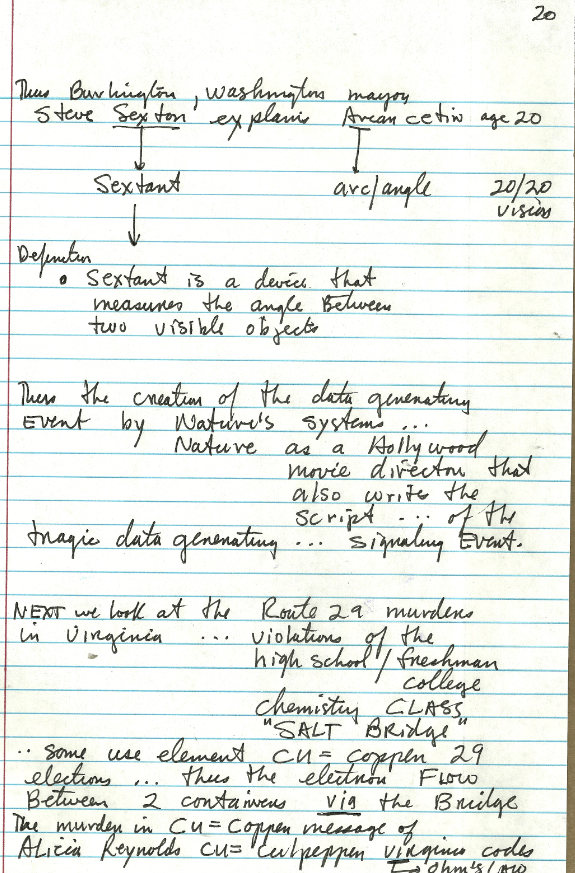 20
Thus Burlington, Washington mayor
Steve Sexton explains Arcan cetin age 20
Sextant arc/angle 20/20
vision
Definition
• Sextant is a device that
measures the angle Between
two visible objects
Thus the creation of the data generating
EVENT by Nature's systems ...
Nature as a Hollywood
movie director that
also write the
script ... of the
tragic data generating ... signaling Event.
NEXT we look at the Route 29 murders
in Virginia ... violations of the
high school / freshman
college
chemistry CLASS
"SALT BRidge"
.. some use element CU = copper 29
electrons ... thus the electron FLOW
Between 2 containers via the Bridge
The murder in Cu = Copper message of
Alicia Reynolds CU = Culpepper virginia codes
→ Ohm's LAW